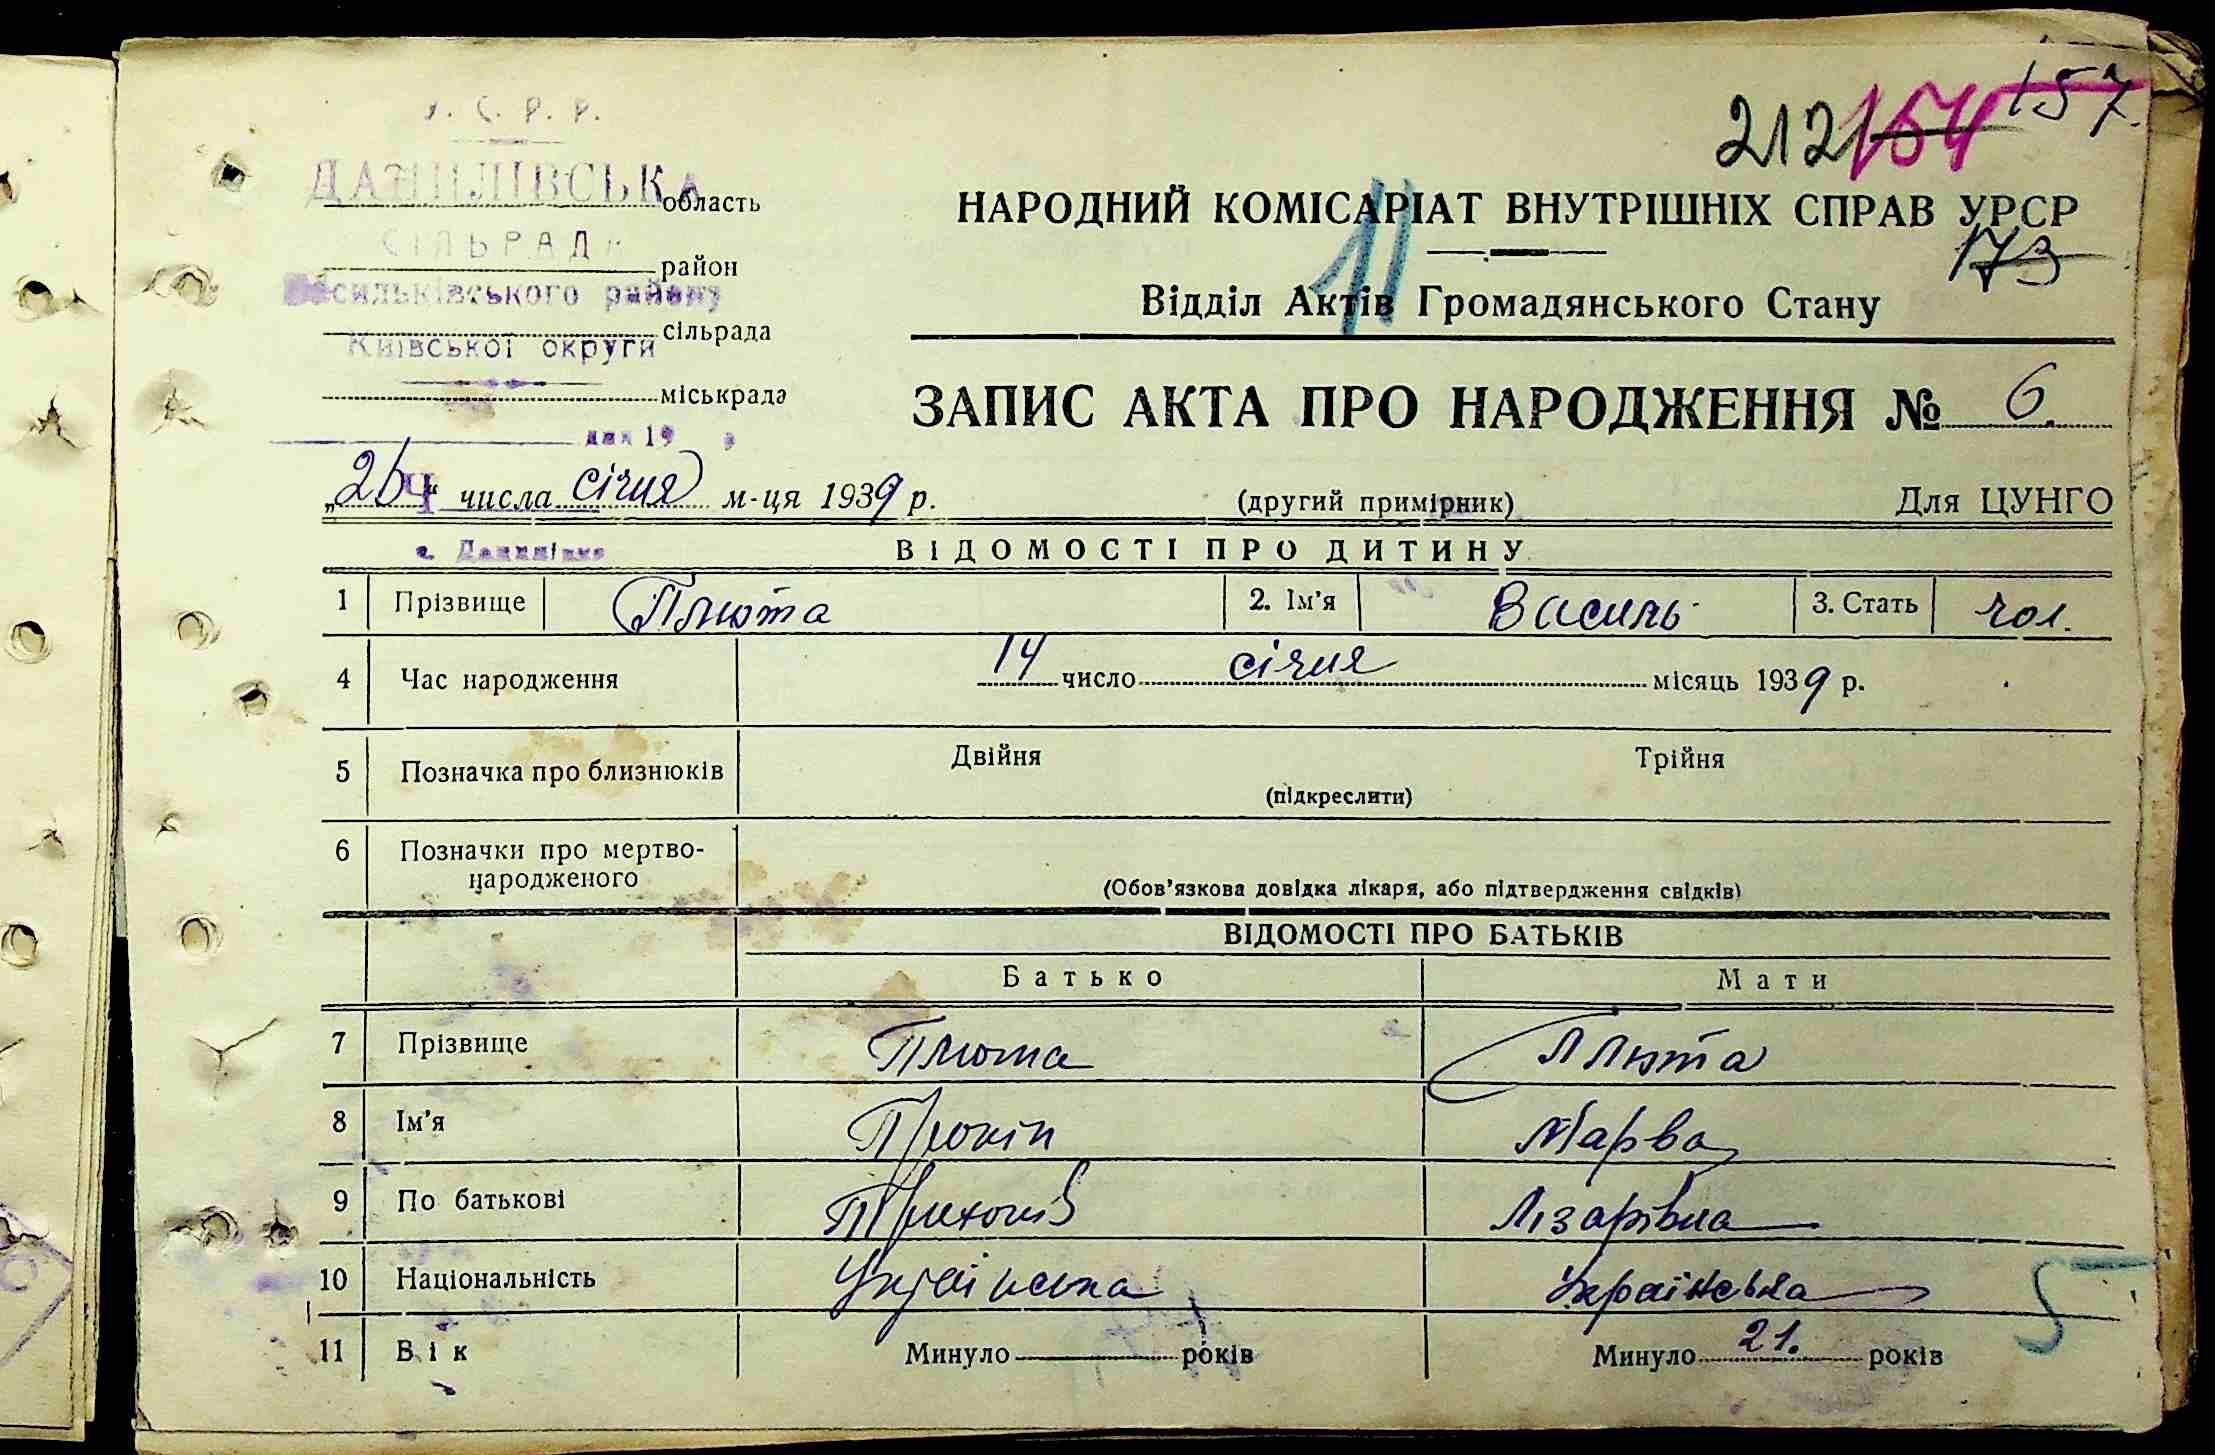 У. С. Р. Р.
212 154 157.
ДАНИЛІВСЬКА область
НАРОДНИЙ КОМІСАРІАТ ВНУТРІШНІХ СПРАВ УРСР
11
173
СІЛЬРАДА
район
Васильківського району
Відділ Актів Громадянського Стану
сільрада
Київської округи
міськрада
ЗАПИС АКТА ПРО НАРОДЖЕННЯ № 6.
дня 19 р
числа січня м-ця 1939 р.
(другий примірник)
Для ЦУНГО
с. Данилівка
ВІДОМОСТІ ПРО ДИТИНУ
1 Прізвище Плюта 2. Ім'я Василь 3. Стать чол.
4 Час народження 14 число січня місяць 1939 р.
5 Позначка про близнюків Двійня Трійня
(підкреслити)
6 Позначки про мертво-
народженого
(Обов'язкова довідка лікаря, або підтвердження свідків)
ВІДОМОСТІ ПРО БАТЬКІВ
Батько Мати
7 Прізвище Плюта Плюта
8 Ім'я Прокіп Марва
9 По батькові Лізарівна
10 Національність Українська Українська
5
11 Вік Минуло років Минуло 21. років